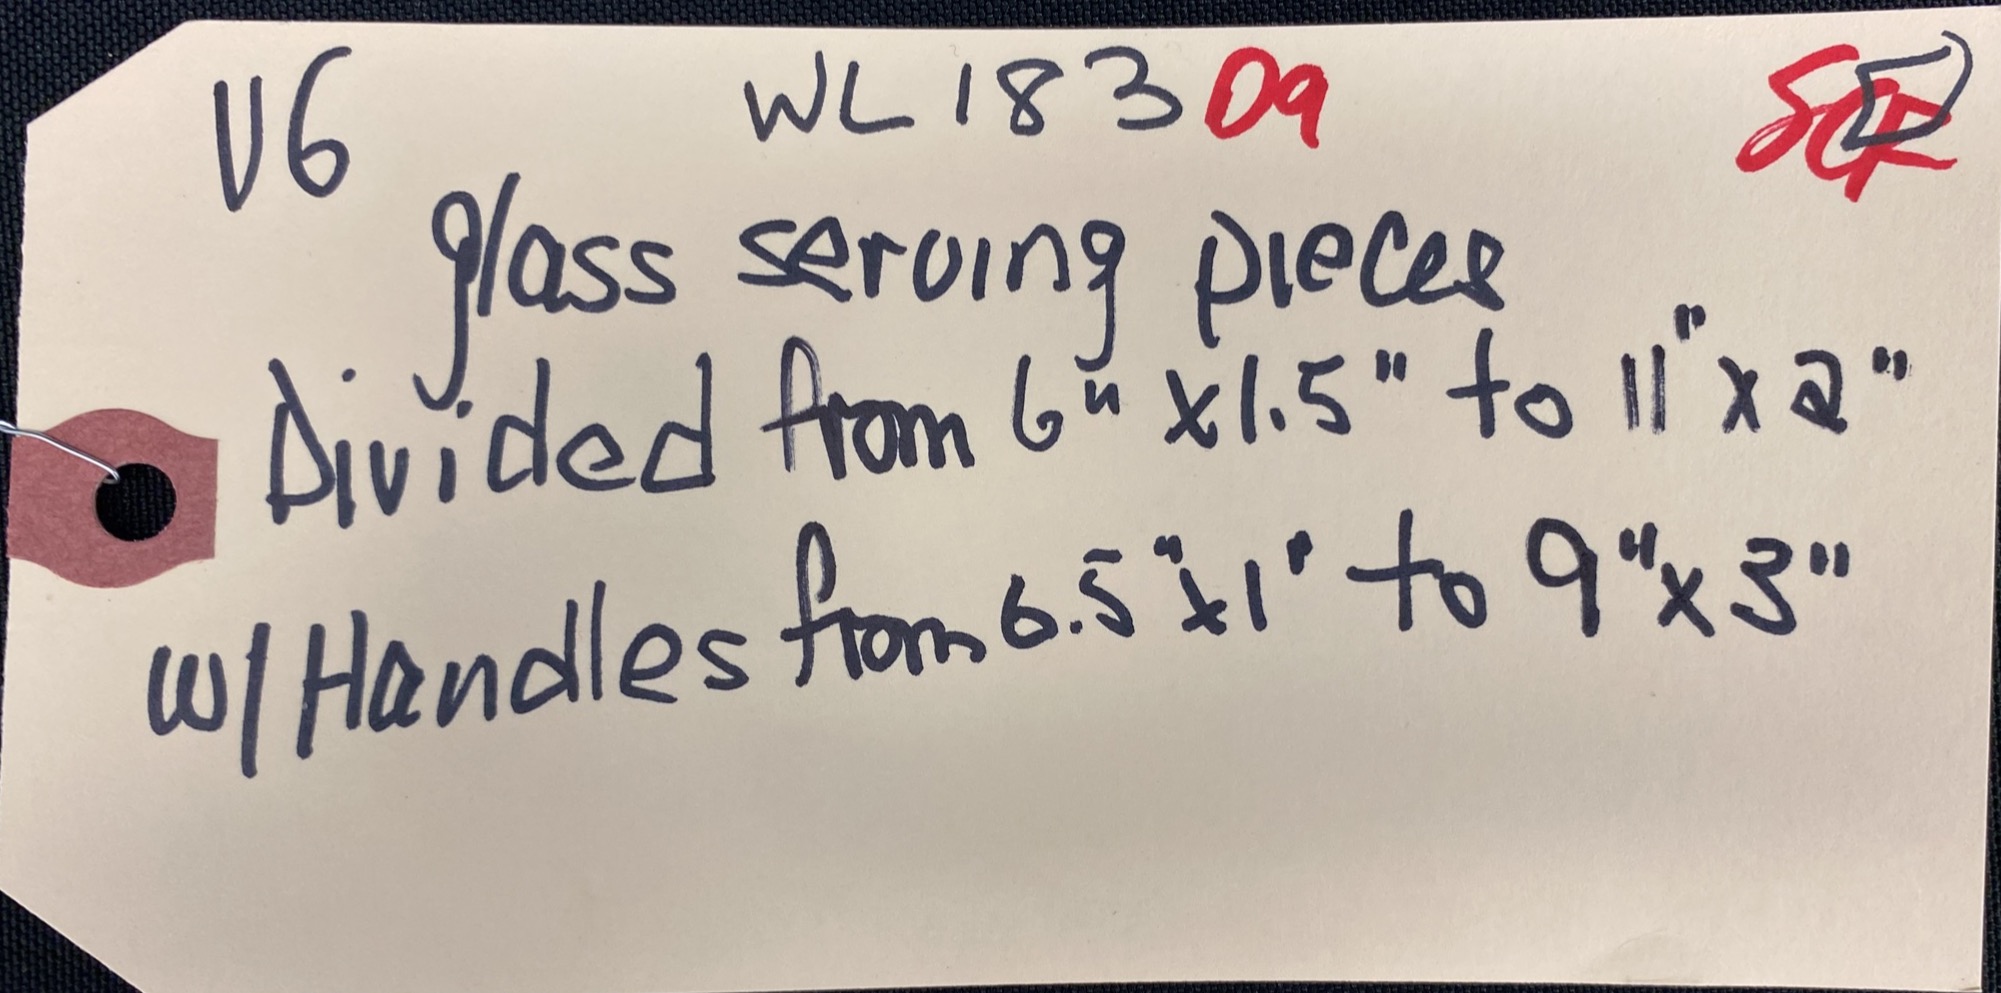 V6 WL183 D9
glass serving pieces
Divided from 6" x 1.5" to 11" x 2"
w/ Handles from 6.5" x 1" to 9" x 3"